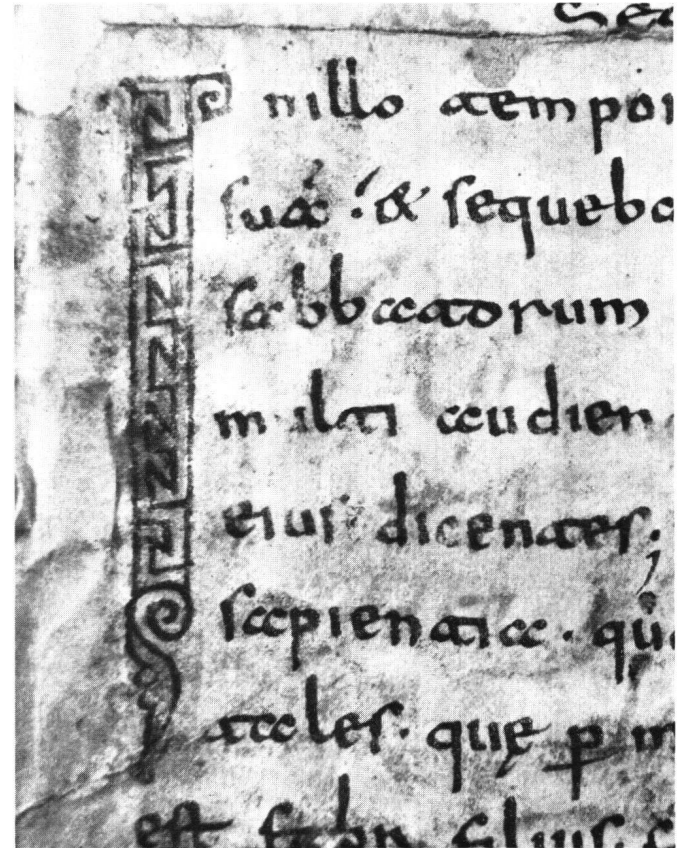 Sec
Inillo tempor
suā & sequeba
sabbatorum
multi audien
eius dicentes;
sapientia. qu
tales. quę ꝑ
est